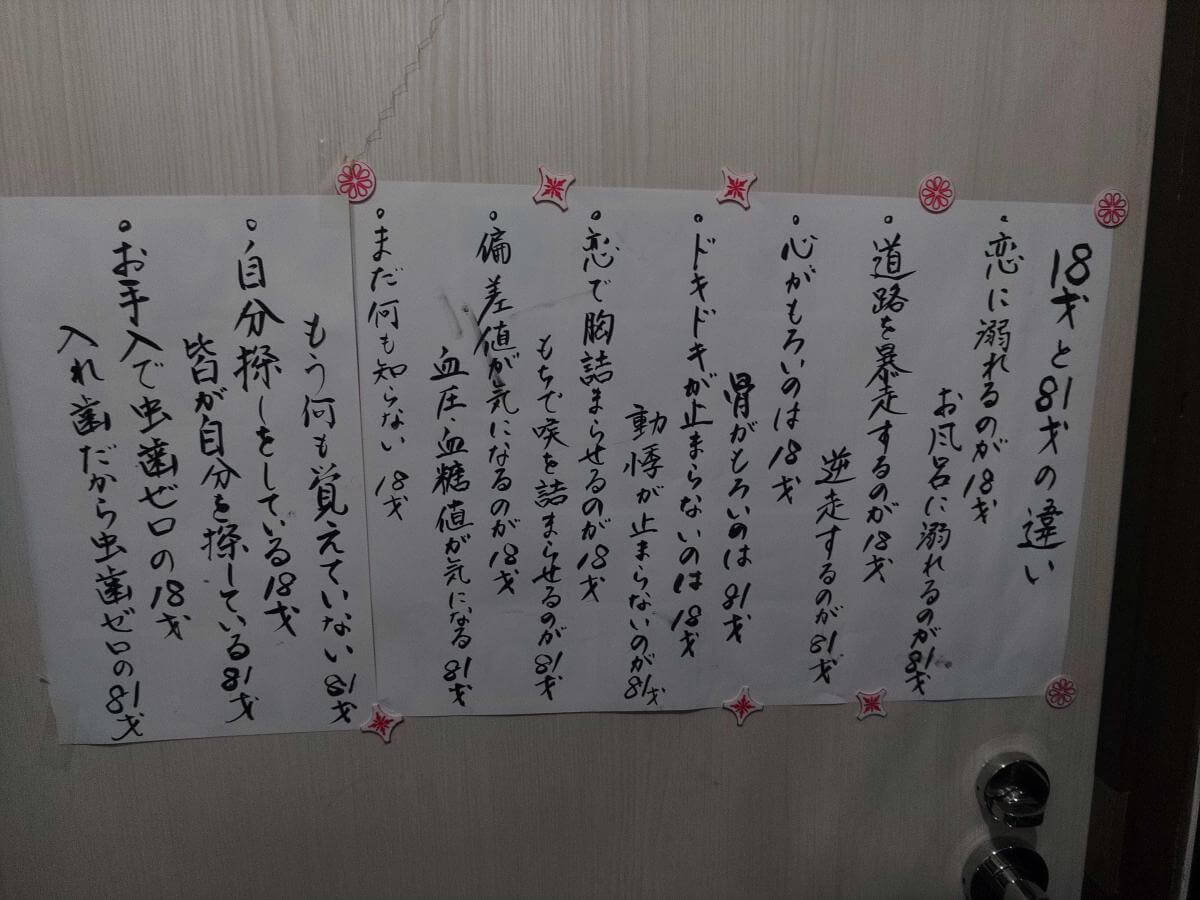 18才と81才の違い
。恋に溺れるのが18才
お風呂に溺れるのが81才
。道路を暴走するのが18才
逆走するのが81才
。心がもろいのは18才
骨がもろいのは81才
。ドキドキが止まらないのは18才
動悸が止まらないのが81才
。恋で胸詰まらせるのが18才
もちで喉を詰まらせるのが81才
。偏差値が気になるのが18才
血圧、血糖値が気になる81才
。まだ何も知らない18才
もう何も覚えていない81才
。自分探しをしている18才
皆が自分を探している81才
。お手入で虫歯ゼロの18才
入れ歯だから虫歯ゼロの81才